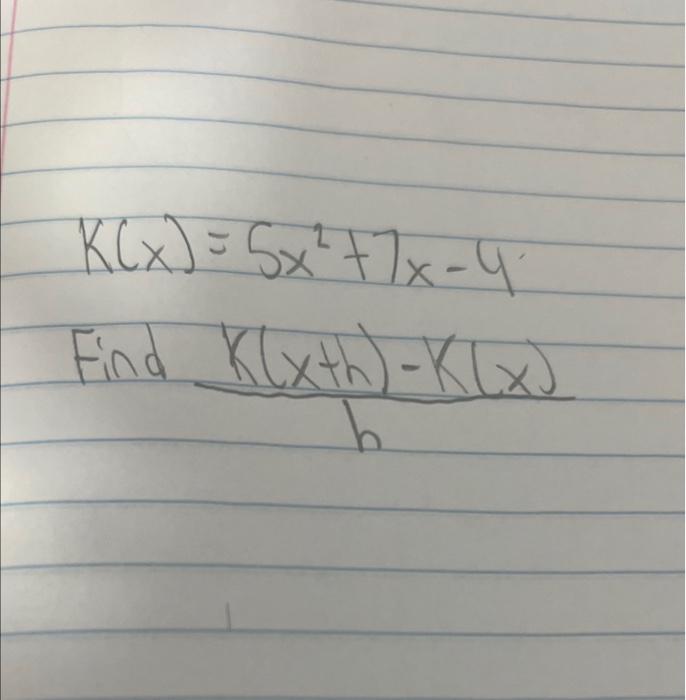 K(x) = 5x² + 7x - 4
Find K(x+h) - K(x)
h